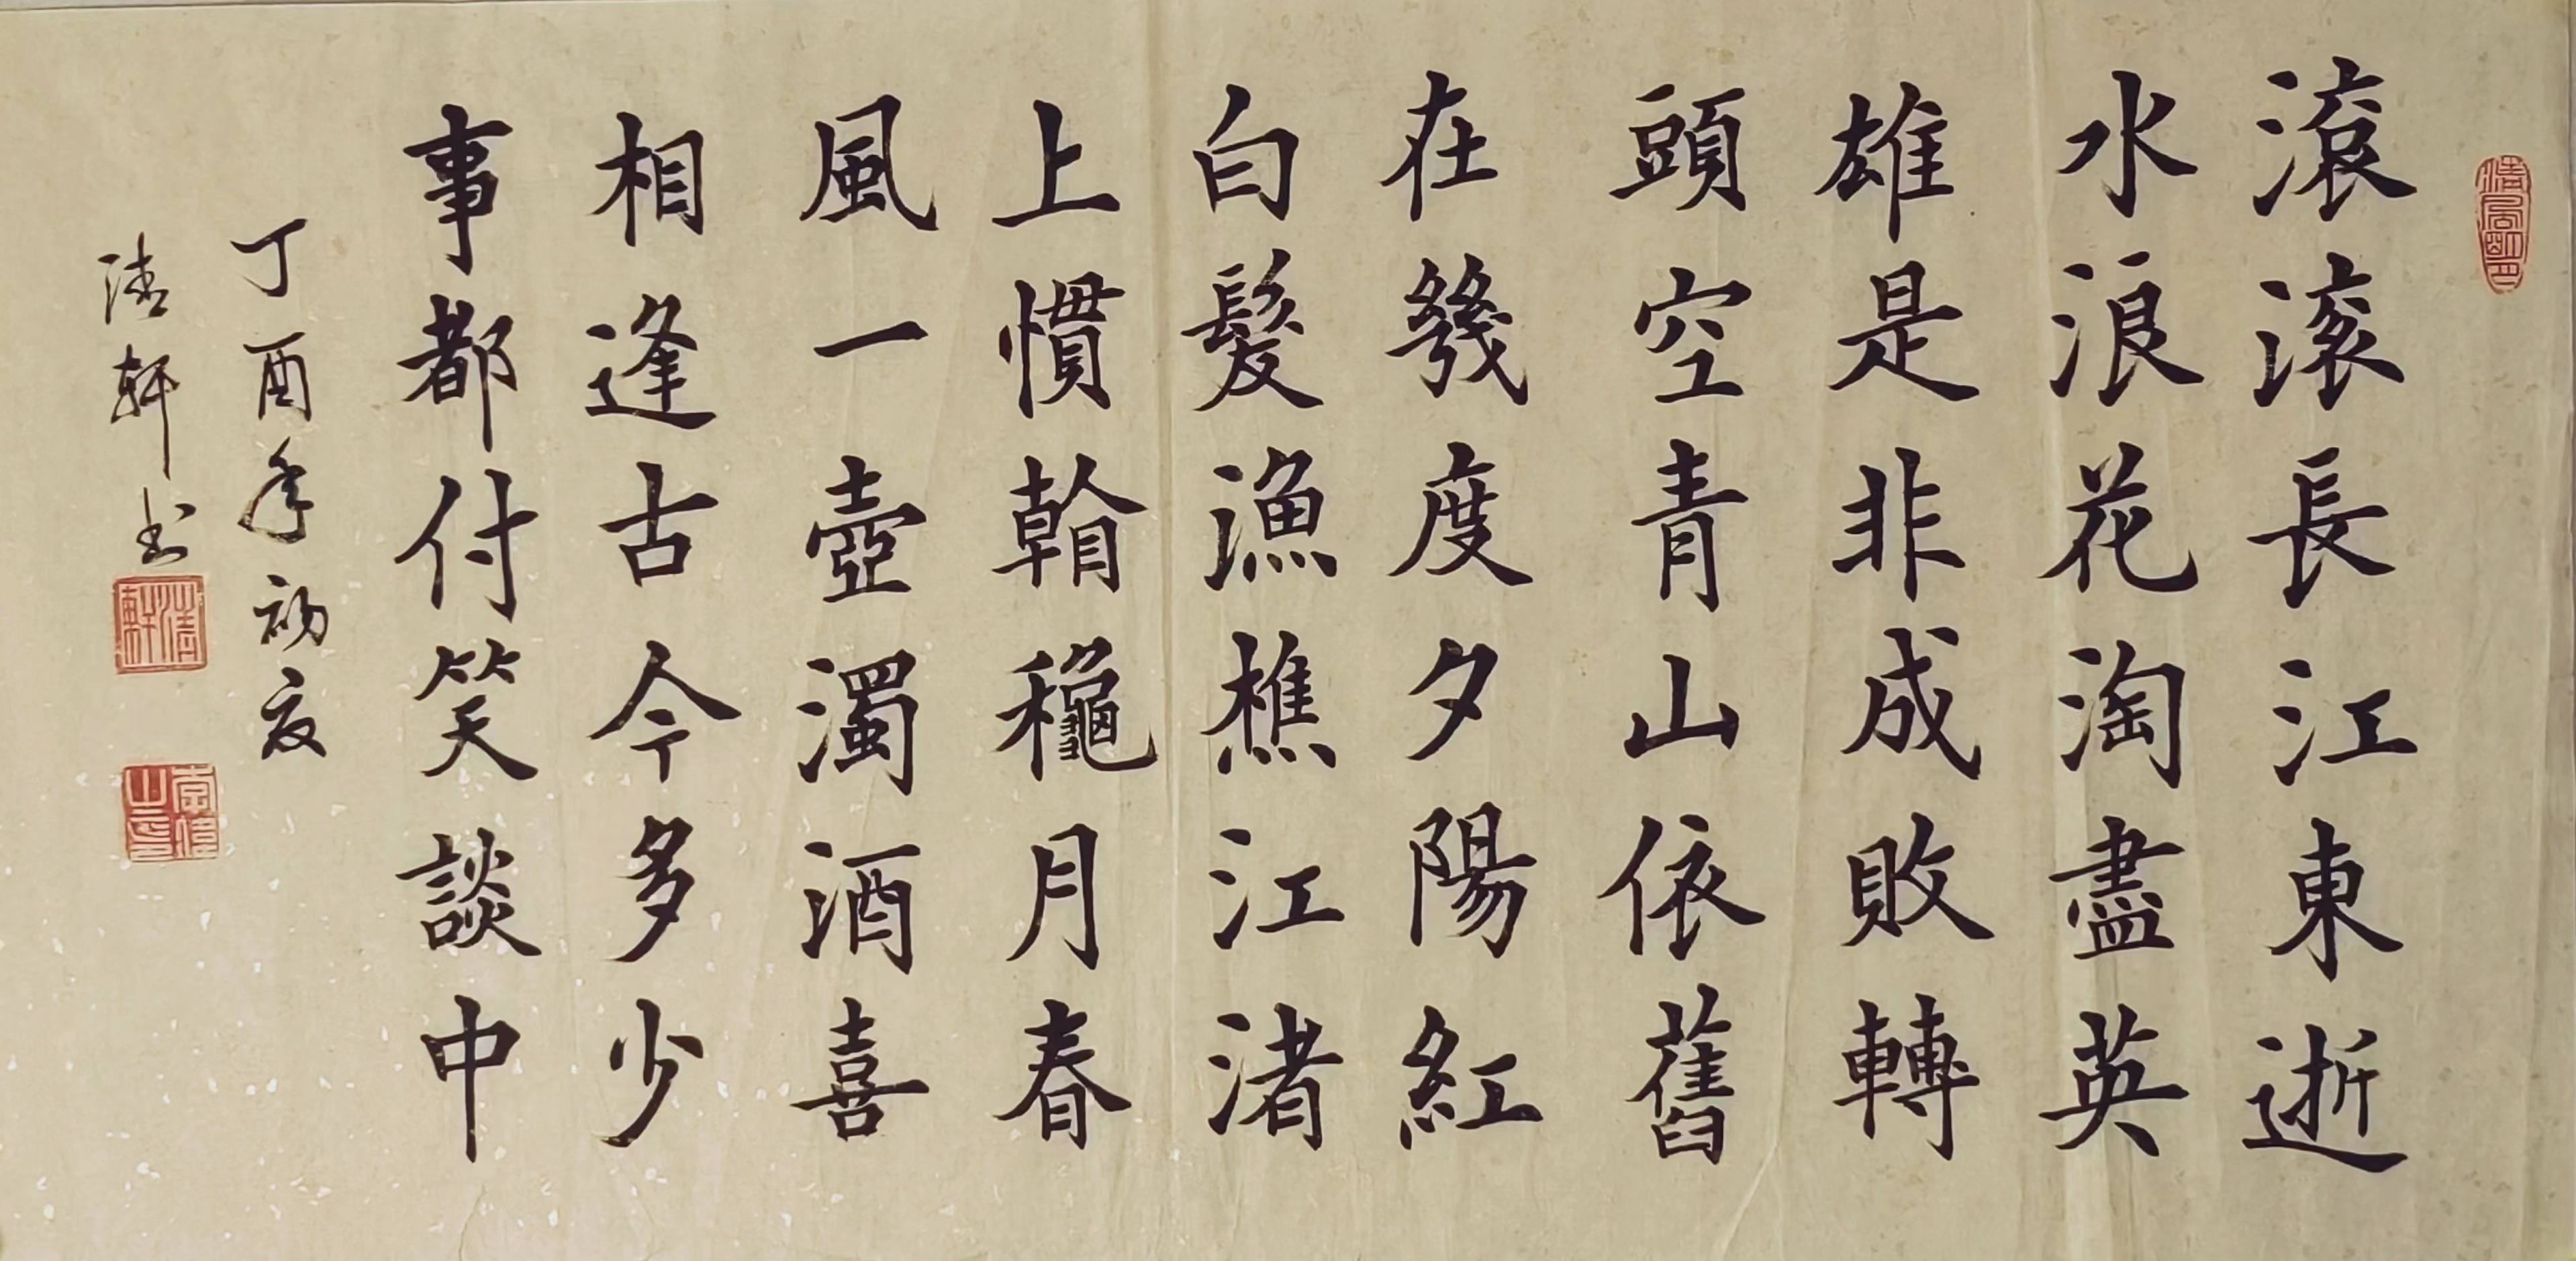 滾滚長江東逝
水浪花淘盡英
雄是非成敗轉
頭空青山依舊
在幾度夕陽紅
白髮漁樵江渚
上慣穐月春
風一壺濁酒喜
相逢古今多少
事都付笑談中
丁酉年初夏
清軒书
清軒